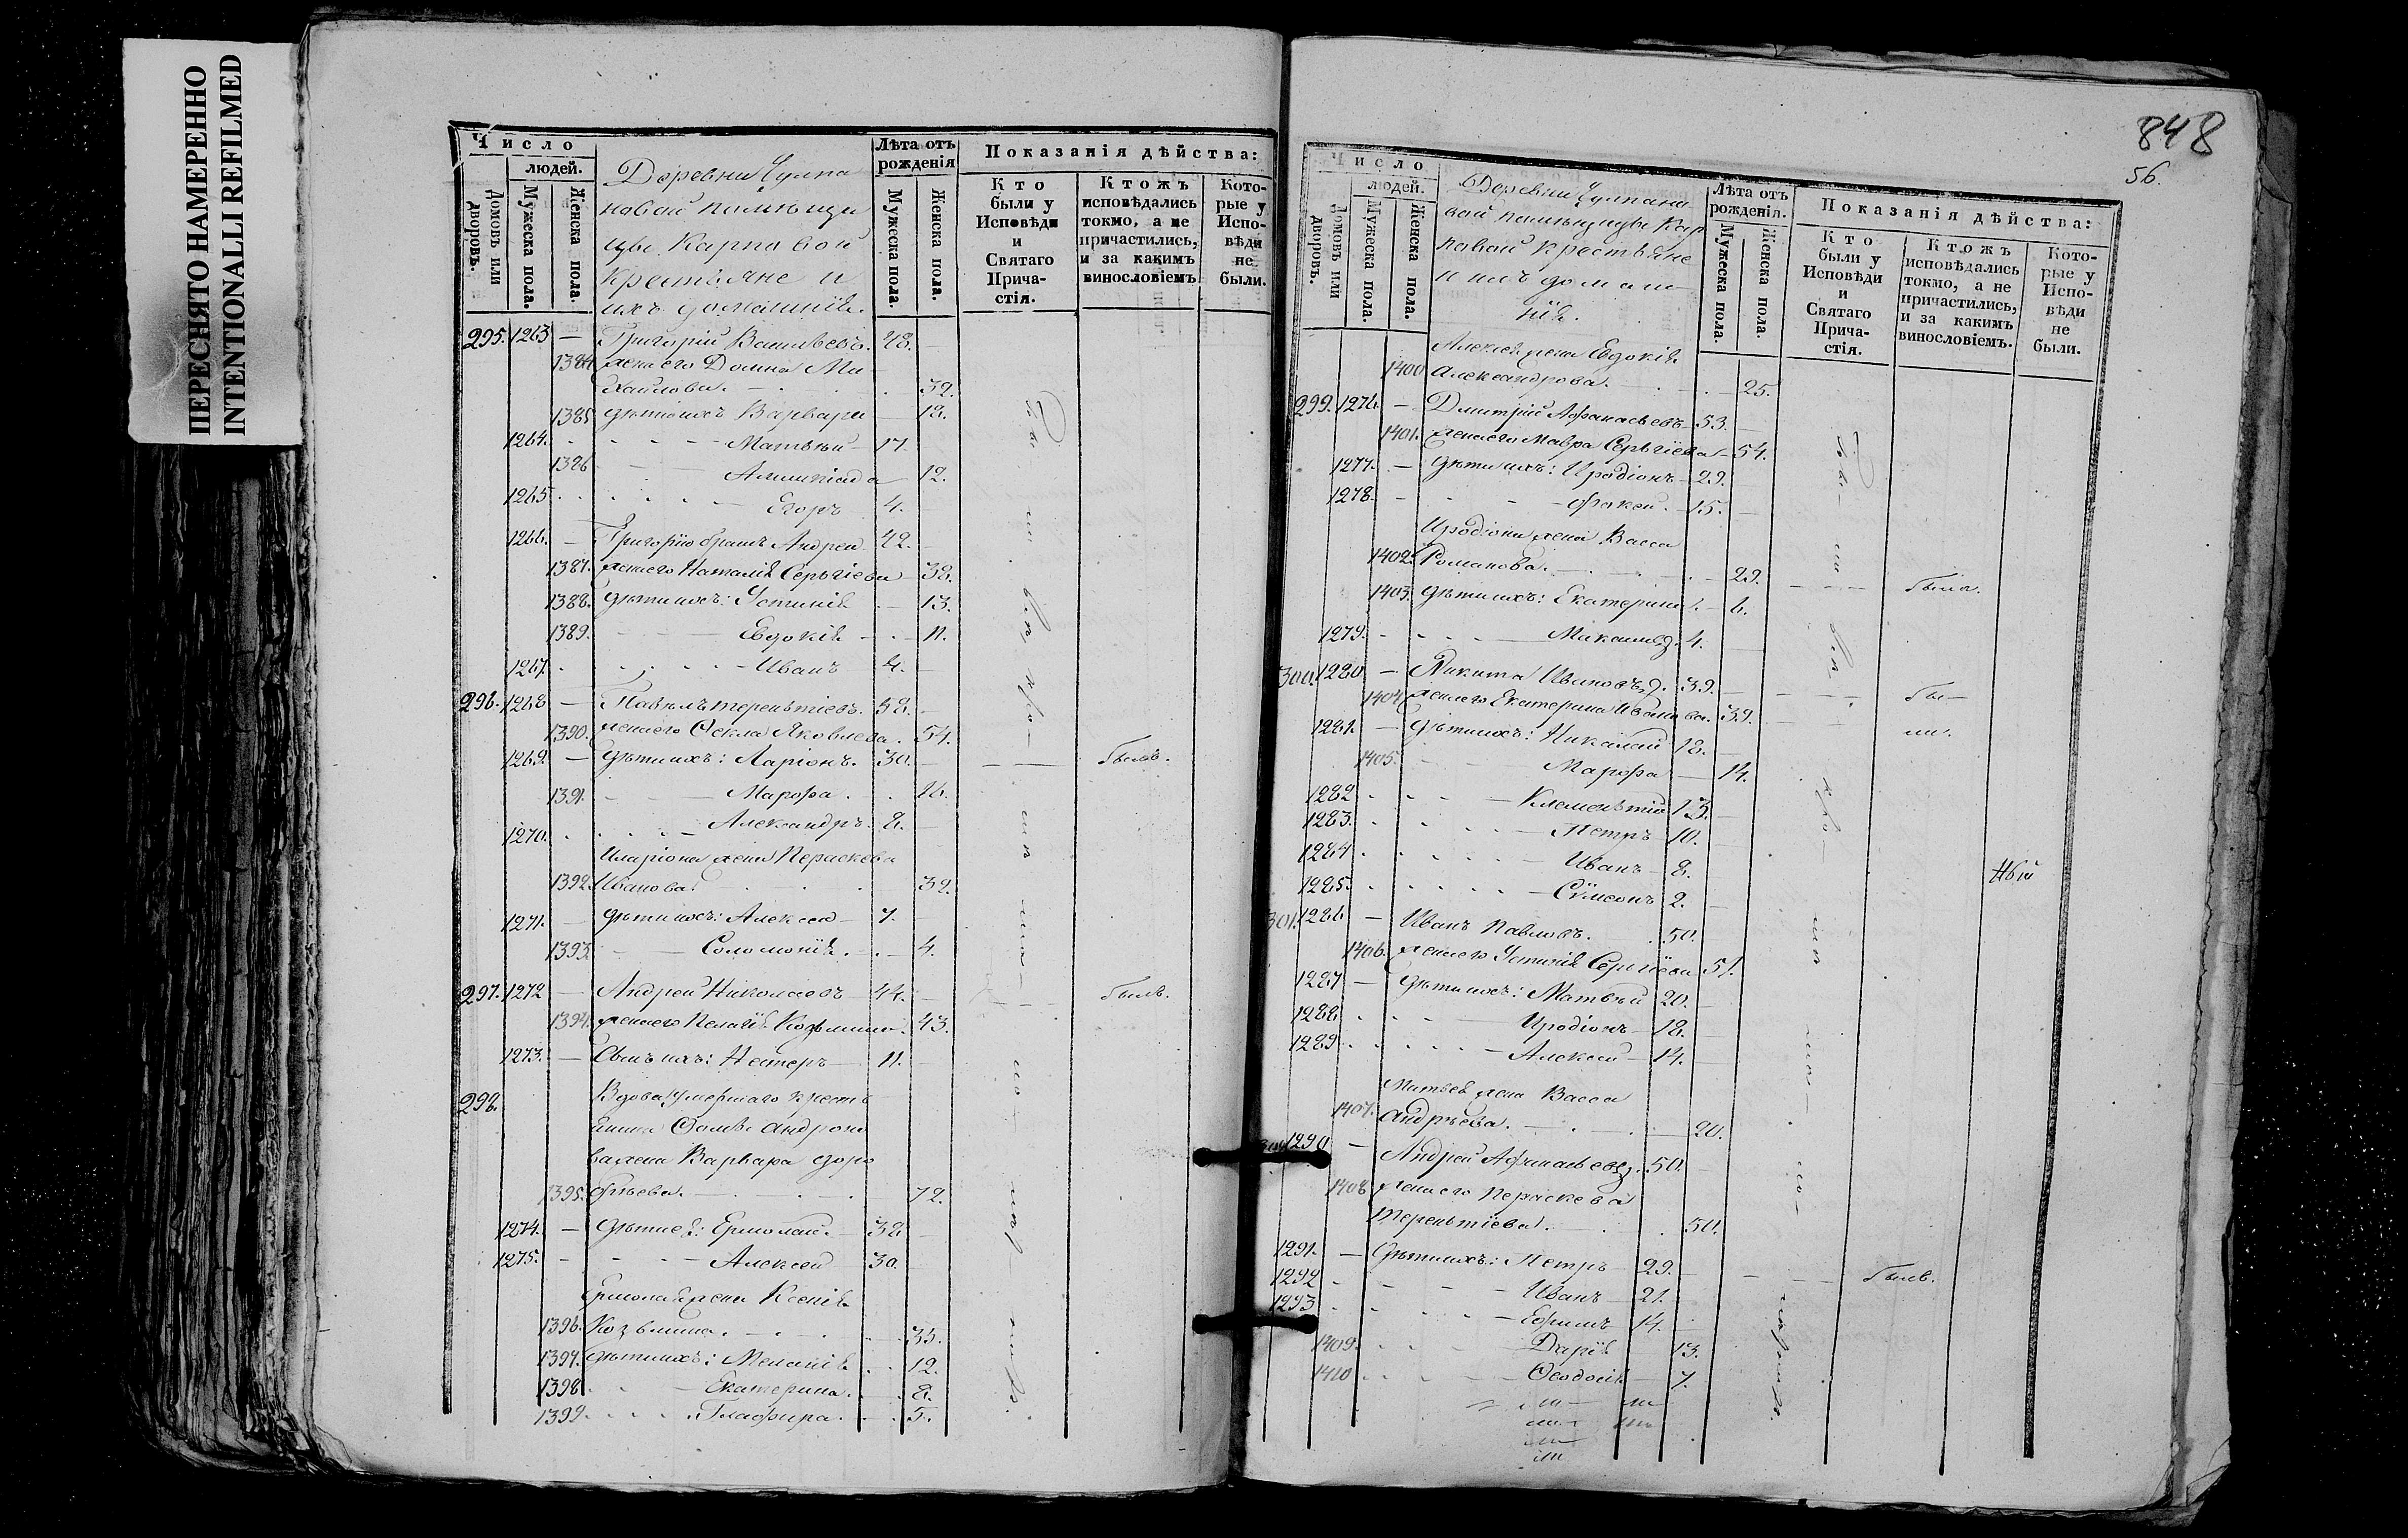 ПЕРЕСНЯТО НАМЕРЕННО
INTENTIONALLI REFILMED
Число
людей.
Домовъ или дворовъ.
Мужеска пола.
Женска пола.
Деревни Чулпа
новой помѣщи
цы Карповой
крестьяне и
ихъ домашнія.
Лѣта отъ рожденія
Мужеска пола.
Женска пола.
Показанія дѣйства:
Кто были у Исповѣди и Святаго Причастія.
Ктожъ исповѣдались токмо, а не причастились, и за какимъ винословіемъ
Которые у Исповѣди не были.
295. 1263 — Григорій Васильевъ. 48.
1384 жена его Домна Ми
хайлова. 39.
1385 дѣти ихъ Варвара 18.
1264. Матвѣй 17.
1386 12.
1265. Егоръ 4.
1266. — Григорію братъ Андрей 42.
1387. жена его Наталія Сергіева 38.
1388. дѣти ихъ: Устинія 13.
1389. Евдокія 11.
1267. Иванъ 4.
296. 1268 — Павелъ Терентіевъ. 58.
1390. жена его Ѳекла Яковлева. 54.
1269. — дѣти ихъ: Ларіонъ. 30. былъ.
1391. Марфа. 16.
1270. Александръ. 8.
Иларіона жена Параскева
1392. Иванова. 32.
1271. — дѣти ихъ: Алексей 7.
1393. Соломонія. 4.
297. 1272 — Андрей Николаевъ 44. былъ.
1394. жена его Пелагія Козьмина. 43.
1273. — Сынъ ихъ: Нестеръ 11.
298. Вдова умершаго кресть
янина Ѳомы Андроно
ва жена Варвара Доро
1395. фѣева. 72.
1274. — дѣти ея: Ермолай. 38
1275. Алексей 30.
Ермолая жена Ксенія
1396. Козьмина. 35.
1397. дѣти ихъ: Меланія 12.
1398 Екатерина. 8.
1399. Глафира. 5.
848
56.
Число
людей.
Домовъ или дворовъ.
Мужеска пола.
Женска пола.
Деревни Чулпано
вой помѣщицы Кар
повой крестьяне
и ихъ домаш
нія.
Лѣта отъ рожденія.
Мужеска пола.
Женска пола.
Показанія дѣйства:
Кто были у Исповѣди и Святаго Причастія.
Ктожъ исповѣдались токмо, а не причастились, и за какимъ винословіемъ.
Которые у Исповѣди не были.
Алексея жена Евдокія
1400 Александрова. 25.
299. 1276. — Дмитрій Афанасьевъ 53.
1401. жена его Мавра Сергіева 54.
1277. — дѣти ихъ: Иродіонъ 29.
1278. Фокей. 15.
Иродіона жена Васса
1402. Романова. 29. была.
1403. дѣти ихъ: Екатерина. 6.
1279. Михаилъ. 4.
300. 1280 — Никита Ивановъ. 39. бы—
1404. жена его Екатерина Иванова. 39. ли.
1281. — дѣти ихъ: Николай 18.
1405. Марфа 14.
1282 Клементій 13.
1283. Петръ 10.
1284 Иванъ 8.
1285. Сѵмеонъ 2.
301. 1286 — Иванъ Павловъ. 50.
1406. жена его Устинія Сергіева 51.
1287 — дѣти ихъ: Матвѣй 20.
1288 Иродіонъ 18.
1289 Алексей 14.
Матвея жена Васса
1407. Андрѣева. 20.
1290 — Андрей Афанасьевъ. 50.
1408 жена его Параскева
Терентіева. 50.
1291. — Дѣти ихъ: Петръ 29. былъ.
1292 Иванъ 21.
1293 Ефимъ 14.
1409. Дарія 13.
1410 Ѳеодосія 7.